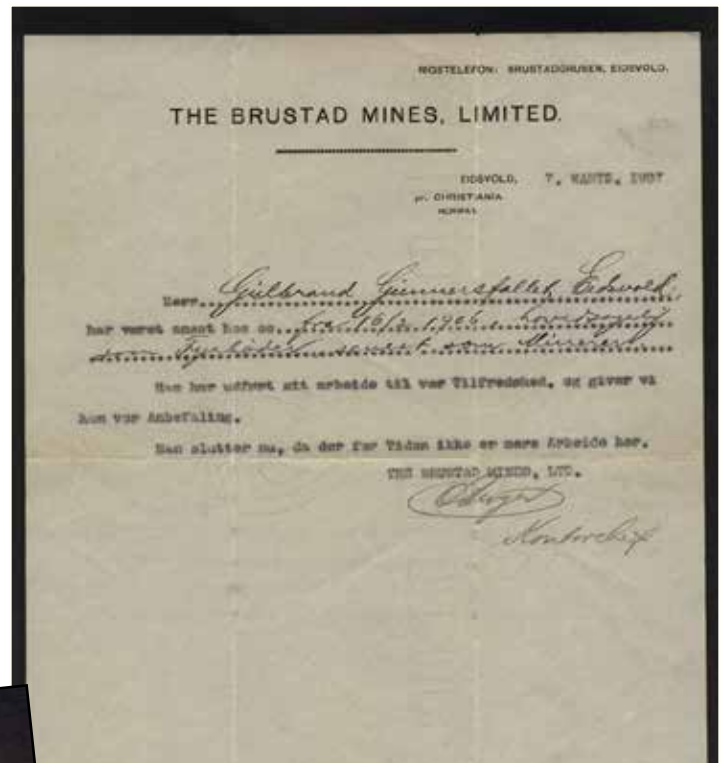 RIGSTELEFON: BRUSTADGRUBEN, EIDSVOLD.
THE BRUSTAD MINES, LIMITED.
EIDSVOLD, 7. MARTS. 1907
pr. CHRISTIANIA
NORWAY.
Herr Gulbrand Gunnersfallet Eidsvold,
har været ansat hos os fra 16/ 1906, hovedsagelig
som Fyrbøder senest som Minerer.
Han har udført sit arbeide til vor Tilfredshed, og giver vi
ham vor Anbefaling.
Han slutter nu, da der for Tiden ikke er mere Arbeide her.
THE BRUSTAD MINES, LTD.
Kontorchef